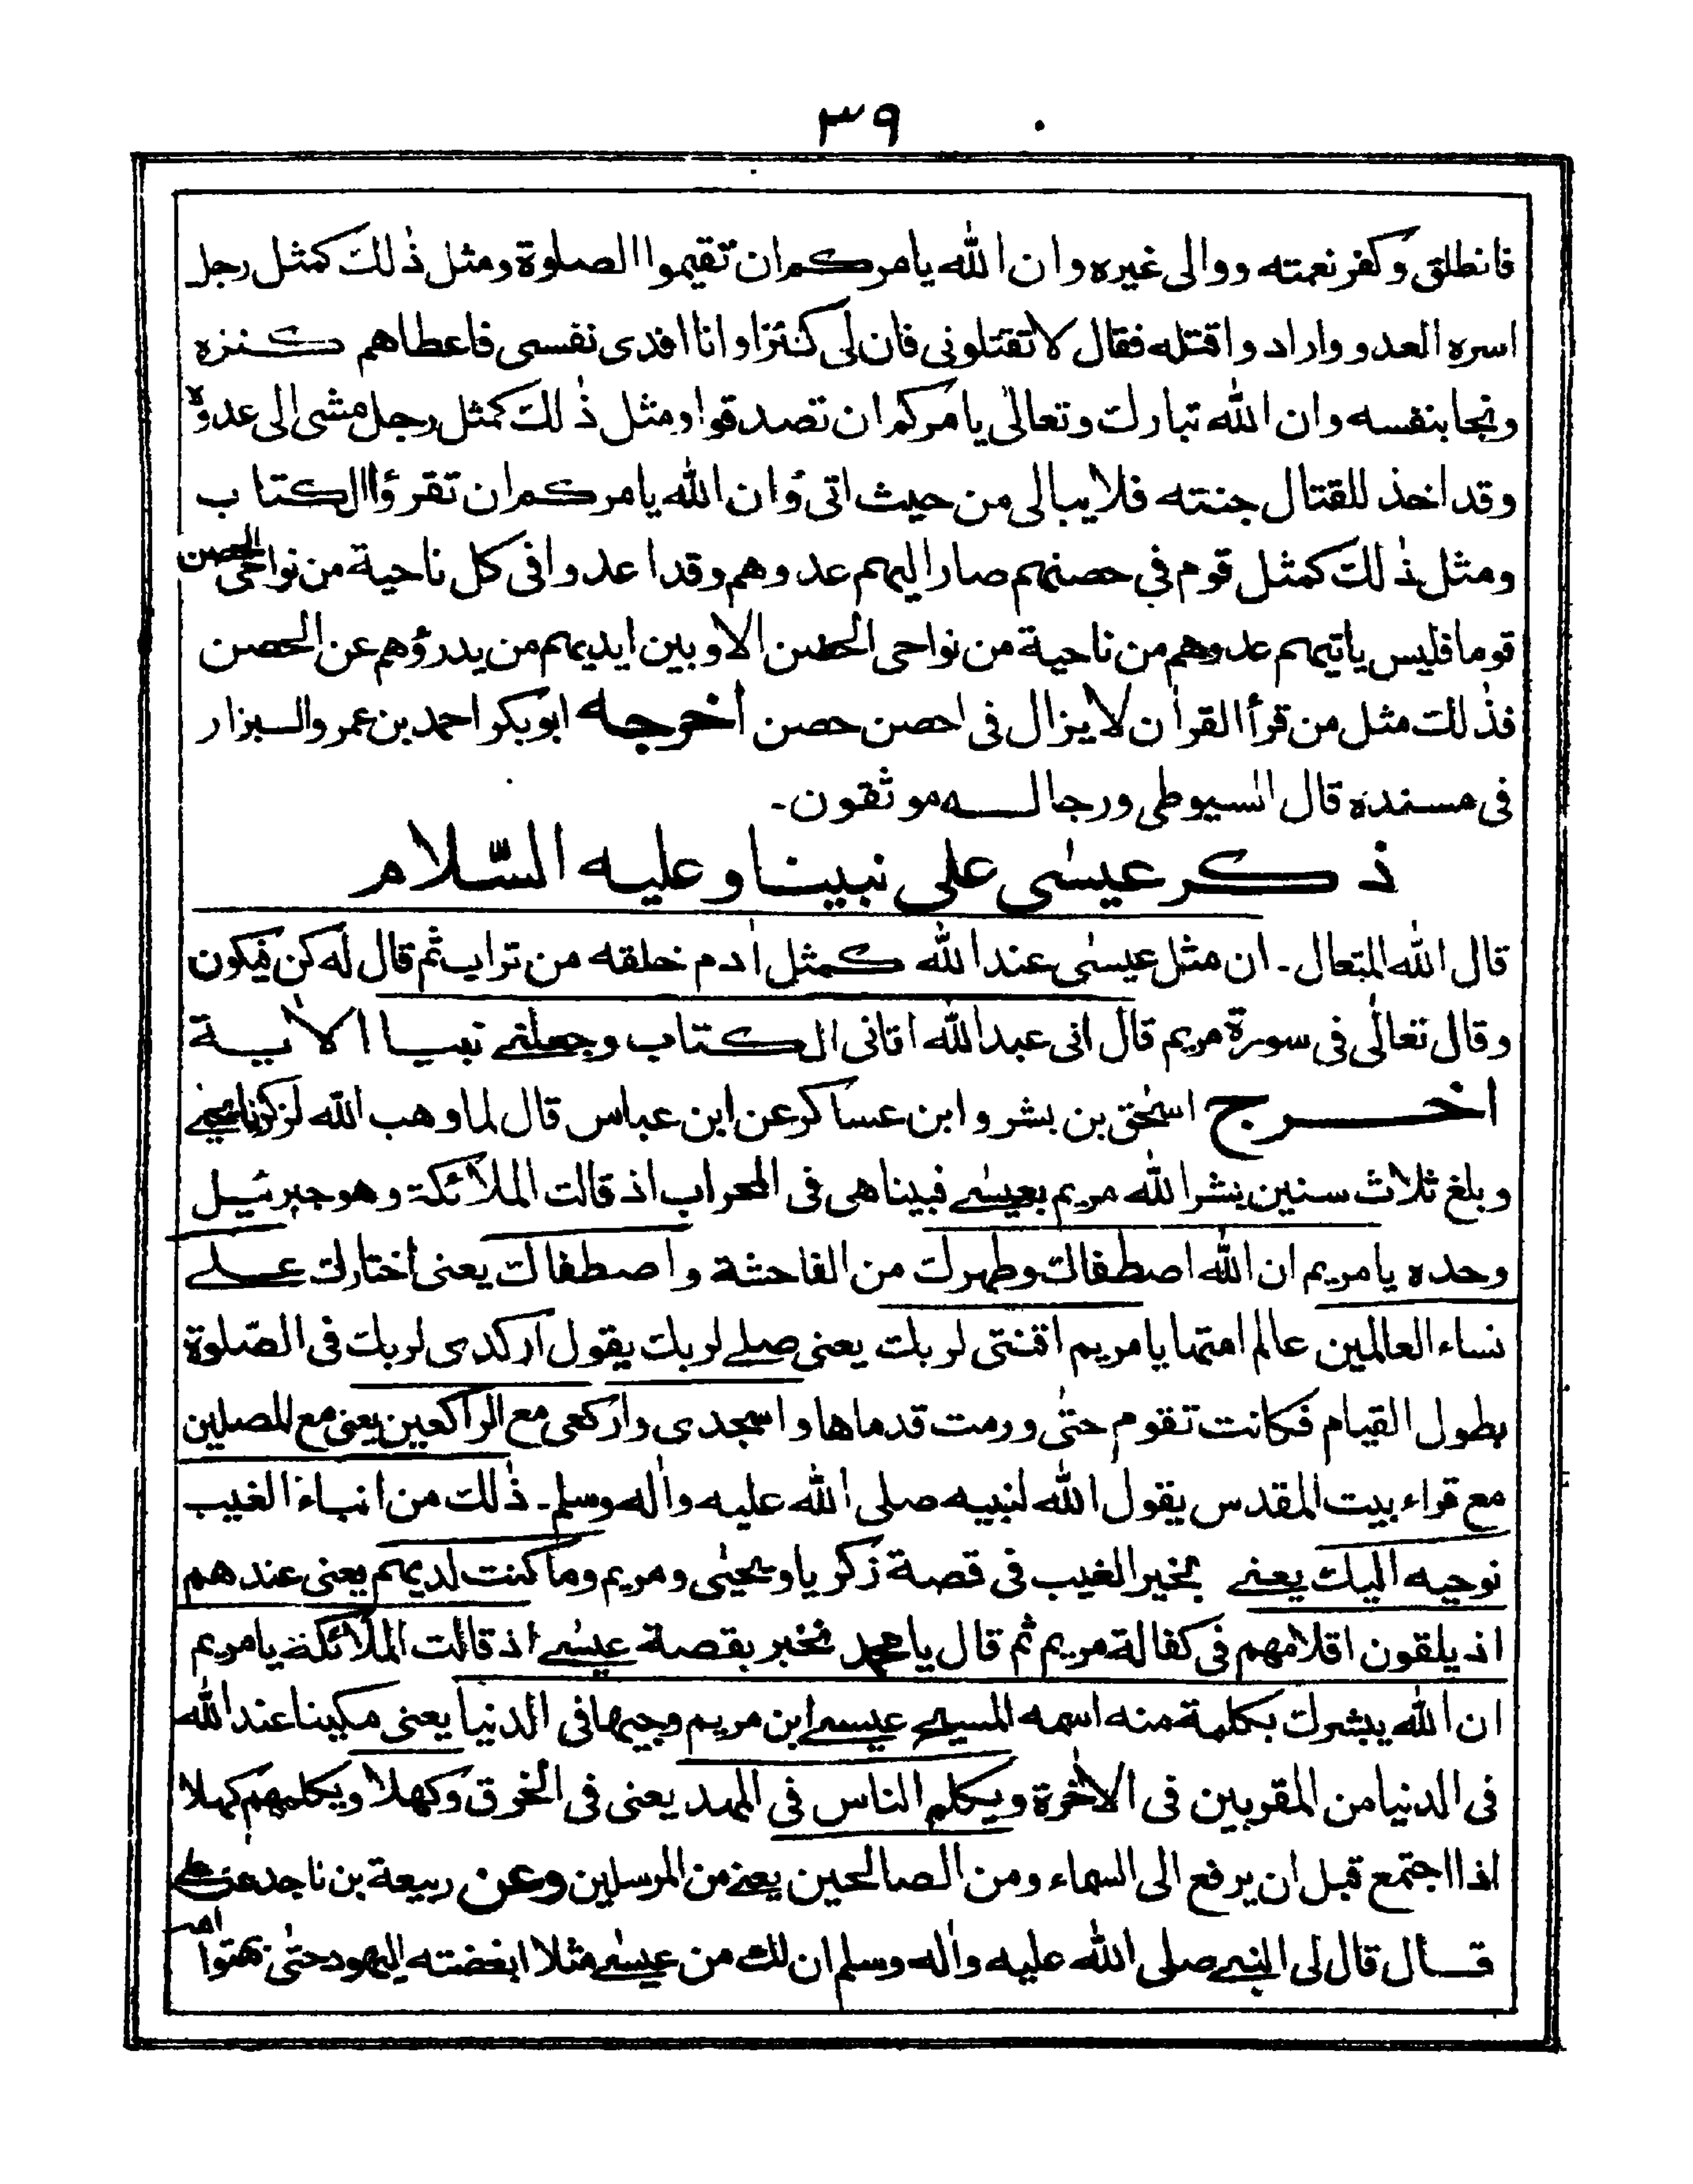 ٣٩
فانطلق وكفر نعمته ووالى غيره وان الله يامركم ان تقيموا الصلوة ومثل ذلك كمثل رجل
اسره العدو واراد واقتله فقال لا تقتلونى فان لى كنزا وانا افدى نفسى فاعطاهم كنزه
ونجا بنفسه وان الله تبارك وتعالى يامركم ان تصدقوا ومثل ذلك كمثل رجل مشى الى عدوه
وقد اخذ للقتال جنته فلا يبالى من حيث اتى وان الله يامركم ان تقرؤا الكتاب
ومثل ذلك كمثل قوم في حصنهم صار اليهم عدوهم وقد اعدوا فى كل ناحية من نواحى الحصن
قوما فليس ياتيهم عدوهم من ناحية من نواحى الحصن الا وبين ايديهم من يدرؤهم عن الحصن
فذلك مثل من قرأ القراٰن لا يزال فى احصن حصن اخرجه ابوبكر احمد بن عمرو البزار
فى مسنده قال السيوطى ورجاله موثقون۔
ذكر عيسٰى على نبينا وعليه السّلام
قال الله المتعال۔ ان مثل عيسٰى عند الله كمثل اٰدم خلقه من تراب ثم قال له كن فيكون
وقال تعالٰى فى سورة مريم قال انى عبد الله اتانى الكتاب وجعلنے نبيا الاٰية
اخرج اسحٰق بن بشر وابن عساكر عن ابن عباس قال لما وهب الله لزكريا يحيے
وبلغ ثلاث سنين بشر الله مريم بعيسٰے فبينا هى فى المحراب اذ قالت الملائكة وهو جبرئيل
وحده يا مريم ان الله اصطفاك وطهرك من الفاحشة واصطفاك يعنى اختارك علے
نساء العالمين عالم امتها يا مريم اقنتى لربك يعنى صلے لربك يقول اركدى لربك فى الصّلوة
بطول القيام فكانت تقوم حتٰى ورمت قدماها واسجدى واركعى مع الراكعين يعنى مع المصلين
مع قراء بيت المقدس يقول الله لنبيه صلى الله عليه واٰله وسلم۔ ذٰلك من انباء الغيب
نوحيه اليك يعنے بخبر الغيب فى قصة زكريا ويحيٰى ومريم وما كنت لديهم يعنى عندهم
اذ يلقون اقلامهم فى كفالة مريم ثم قال يا محمد نخبر بقصة عيسٰے اذ قالت الملائكة يا مريم
ان الله يبشرك بكلمة منه اسمه المسيح عيسے ابن مريم وجيها فى الدنيا يعنى مكينا عند الله
فى الدنيا من المقربين فى الاٰخرة ويكلم الناس فى المهد يعنى فى الخرق وكهلا ويكلمهم كهلا
اذا اجتمع قبل ان يرفع الى السماء ومن الصالحين يعنے من المرسلين وعن ربيعة بن ناجد عن علے
قال قال لى النبے صلى الله عليه واٰله وسلم ان لك من عيسٰے مثلا ابغضته اليهود حتٰى بهتوا امه